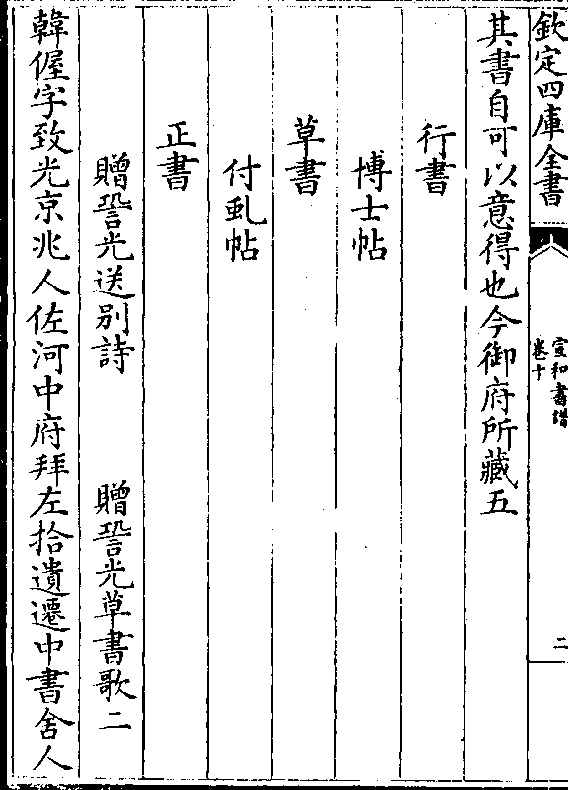 欽定四庫全書
宣和書譜
卷十
二
其書自可以意得也今御府所藏五
行書
博士帖
草書
付虬帖
正書
贈䛒光送別詩　贈䛒光草書歌二
韓偓字致光京兆人佐河中府拜左拾遺遷中書舍人